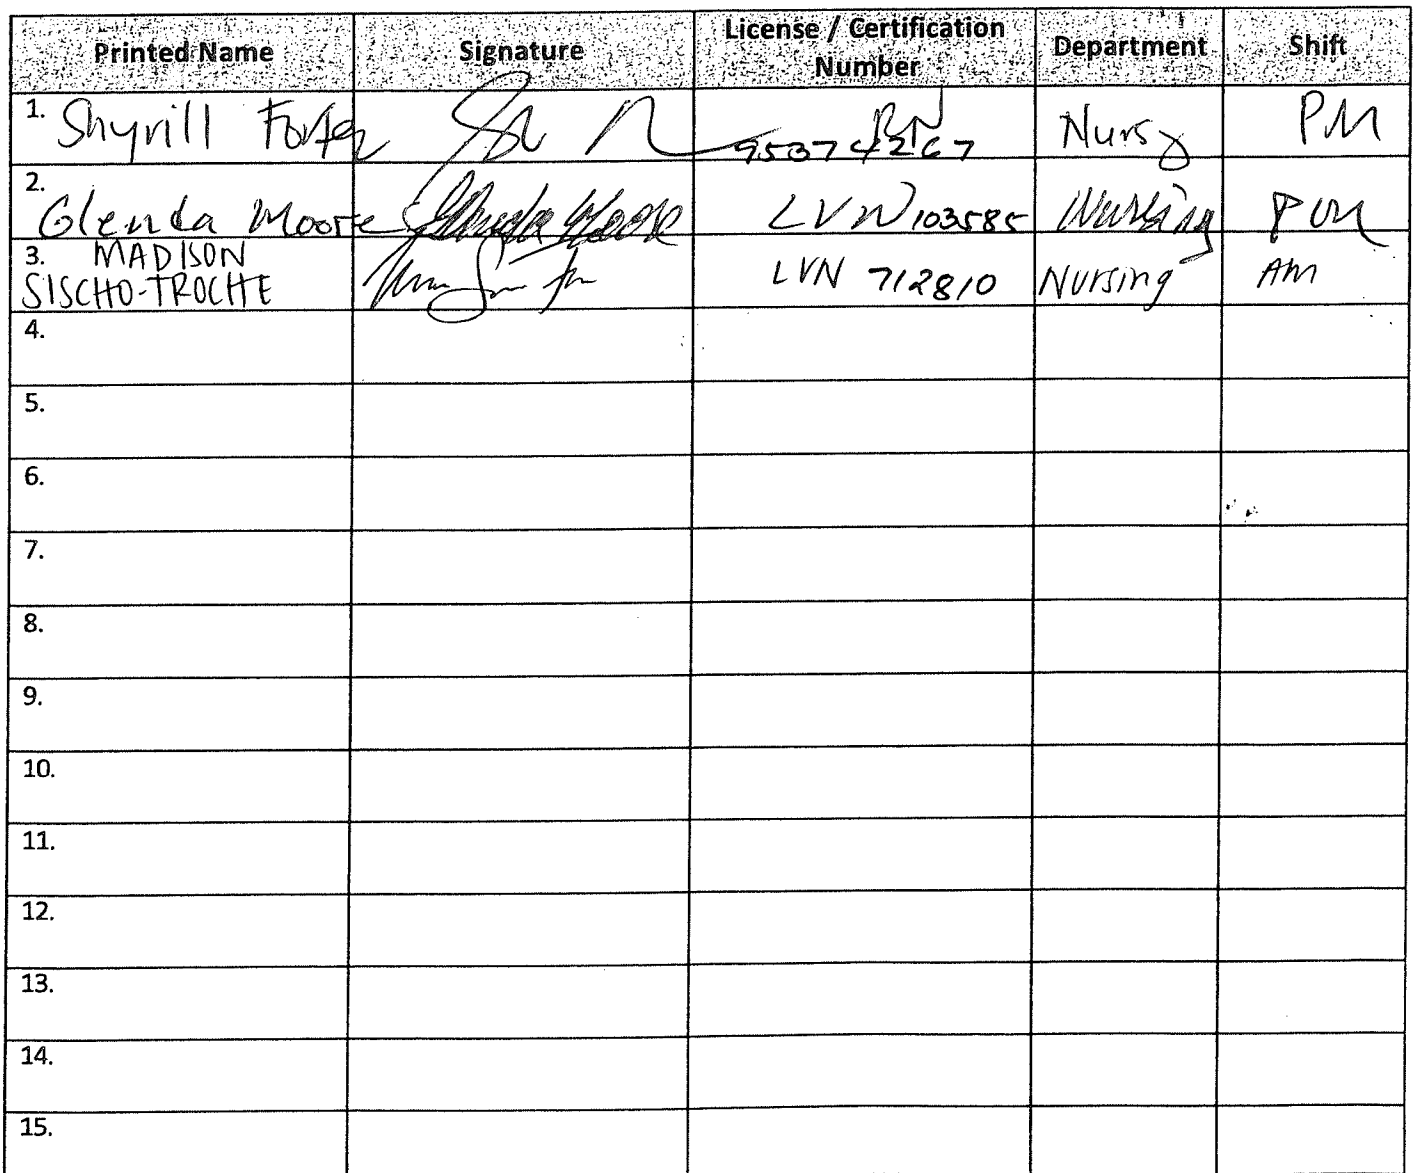 Printed Name Signature License / Certification Number Department Shift
1. Shyrill PM
RN
2. Glenda Moore Glenda Moore LVN 103585 Nursing PM
3. MADISON SISCHO-TROCHE LVN 712810 Nursing AM
4.
5.
6.
7.
8.
9.
10.
11.
12.
13.
14.
15.